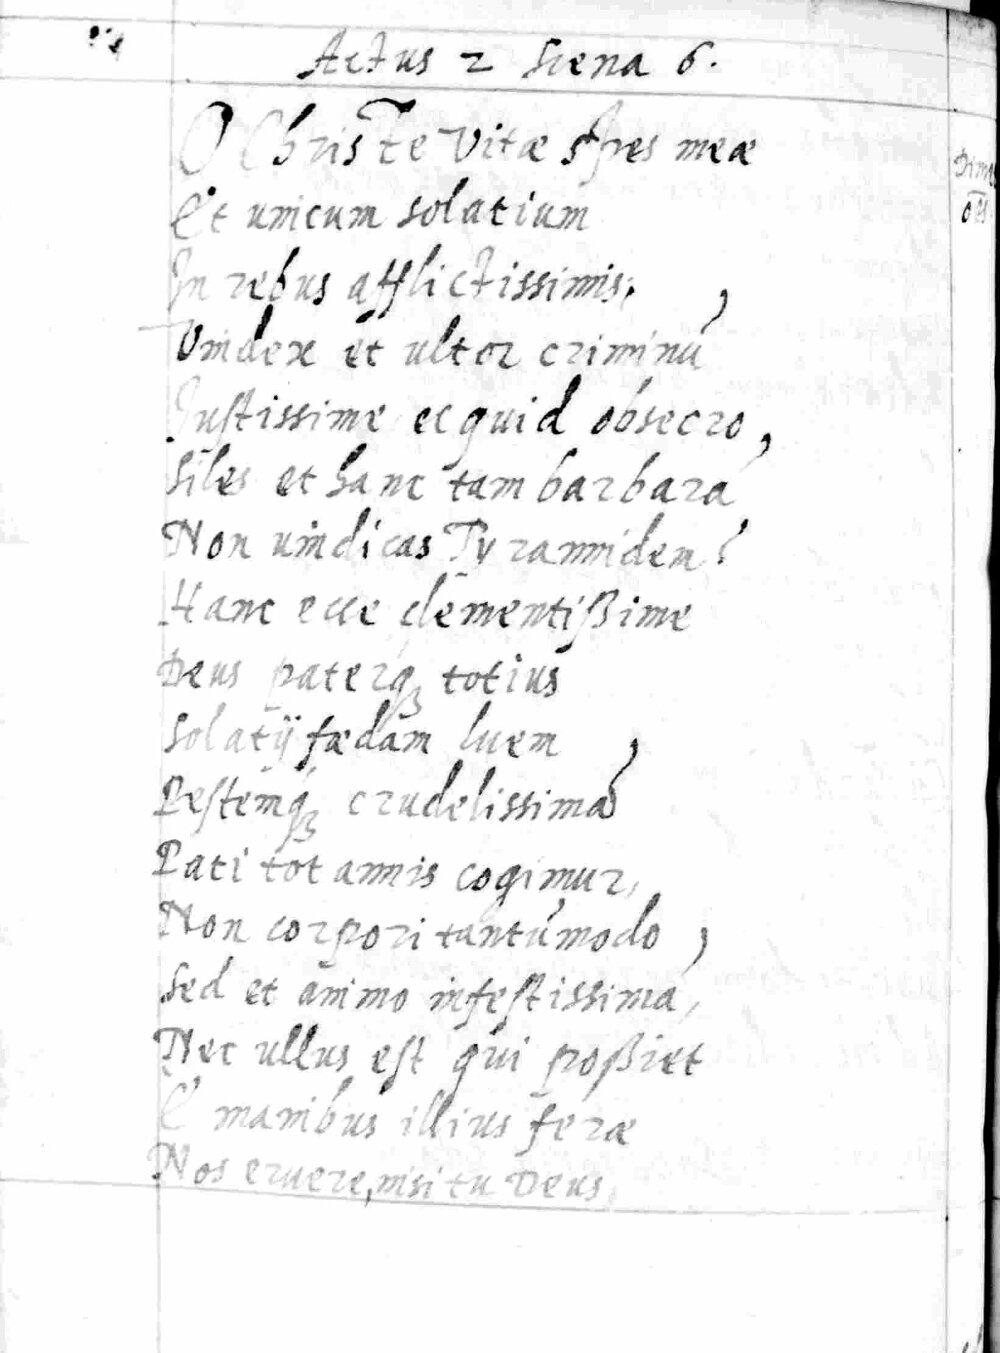 Actus 2 Scena 6.
O Christe vitæ spes meæ
Et unicum solatium
In rebus afflictissimis,
Vindex et ultor criminū,
Justissime ecquid obsecro,
Siles et hanc tam barbarā
Non uindicas Tyrannidem?
Hanc ecce clementißime
Deus paterq₃ totius
Solatij fædam luem,
Pestemq₃ crudelissimā
Pati tot annis cogimur,
Non corpori tantūmodo,
Sed et animo infestissimā,
Nec ullus est qui poßiet
E manibus illius feræ
Nos eruere, nisi tu Deus,